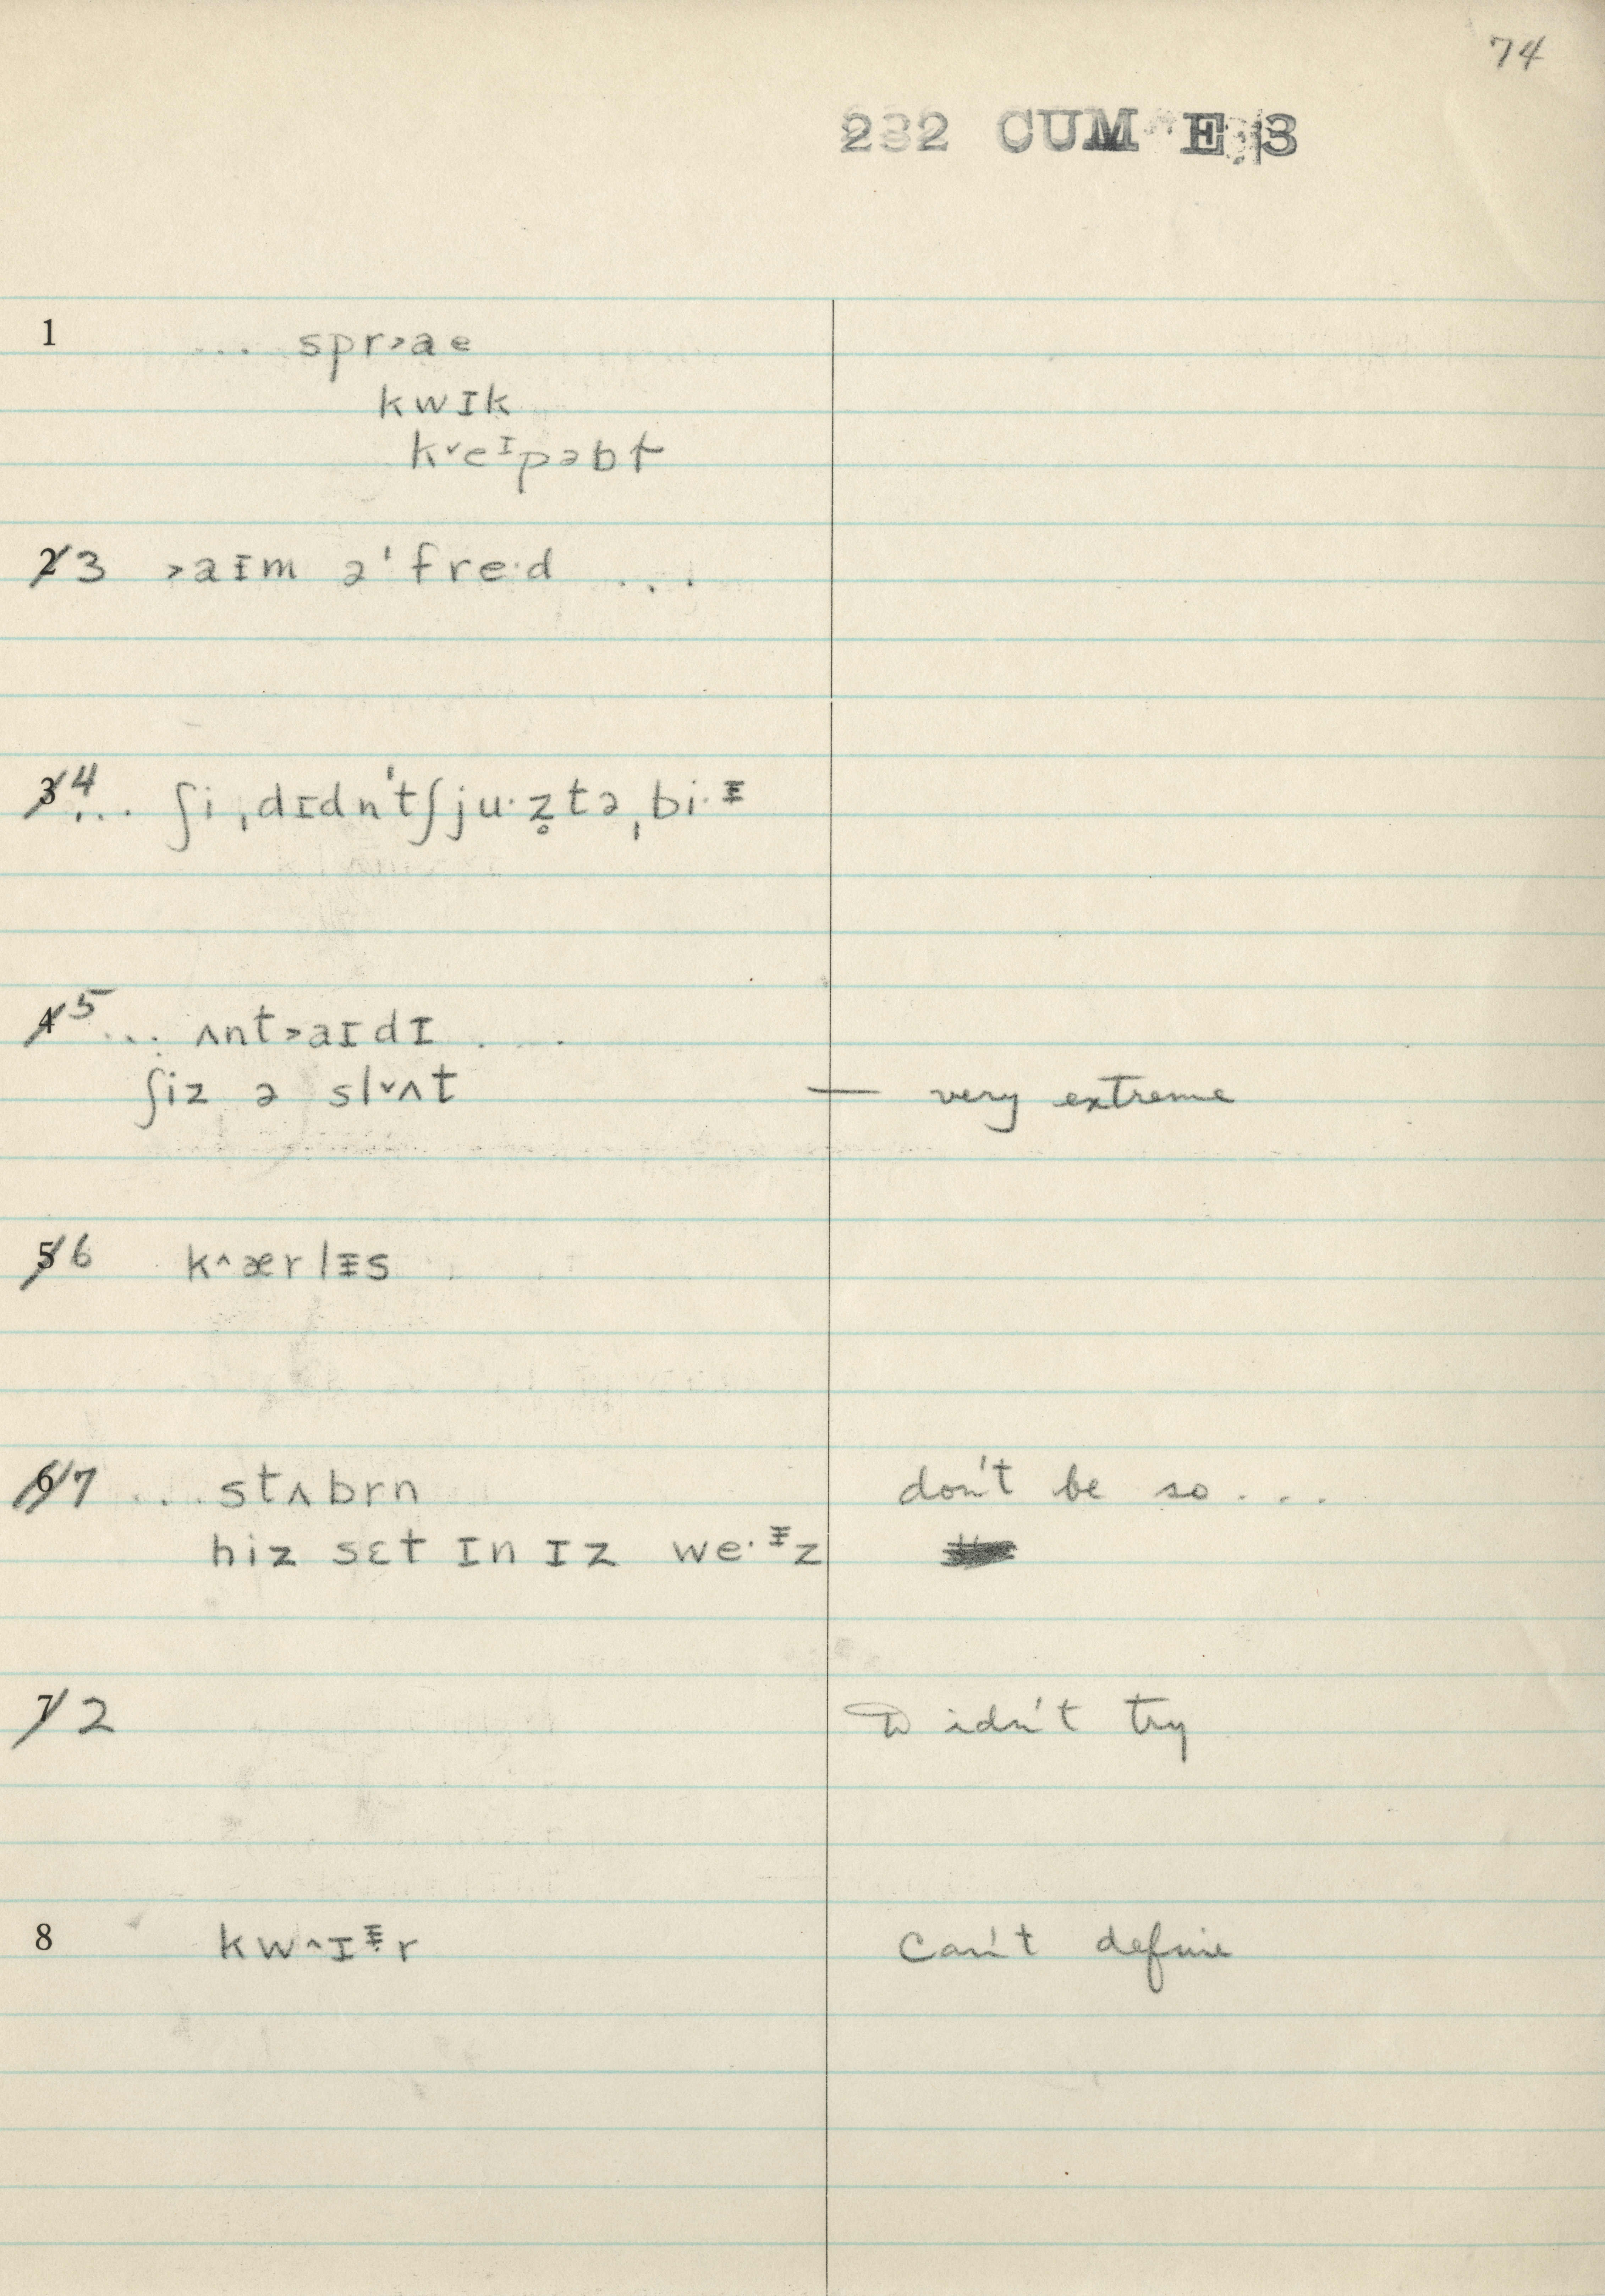 74
232 CUM E 3
1 ... spr˃ae
kwɪk
k˅eᶦpəbɫ
2 3 ˃aɪm ə'fre·d ...
3 4 ... ʃiˌdɪdn'tʃju·z̥təˌbi·ᵻ
4 5 ... ʌnt˃aɪdɪ ...
ʃiz ə sl˅ʌt — very extreme
5 6 k^ærlᵻs
6 7 ... stʌbrn don't be so ...
hiz sɛt ɪn ɪz we·ᵻz
7 2 Didn't try
8 kw^ɪᵻr Can't define